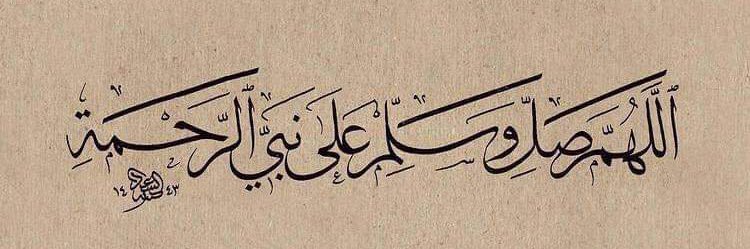 اللَّهُمَّ صَلِّ وَسَلِّمْ عَلَى نَبِيِّ الرَّحْمَةِ
١٤٤٣